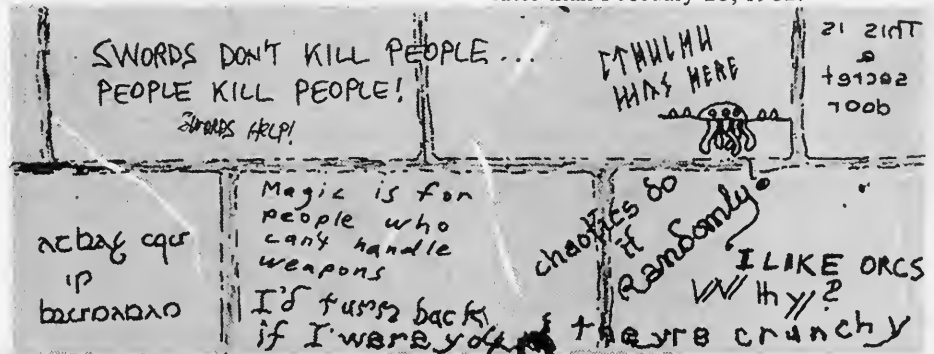 SWORDS DON'T KILL PEOPLE...
PEOPLE KILL PEOPLE!
SWORDS HELP!
CTHULHU
WAS HERE
This is
a
secret
door
Magic is for
people who
can't handle
weapons
I'd turn back
if I were you
chaotics do
it
Randomly.
I LIKE ORCS
Why?
they're crunchy